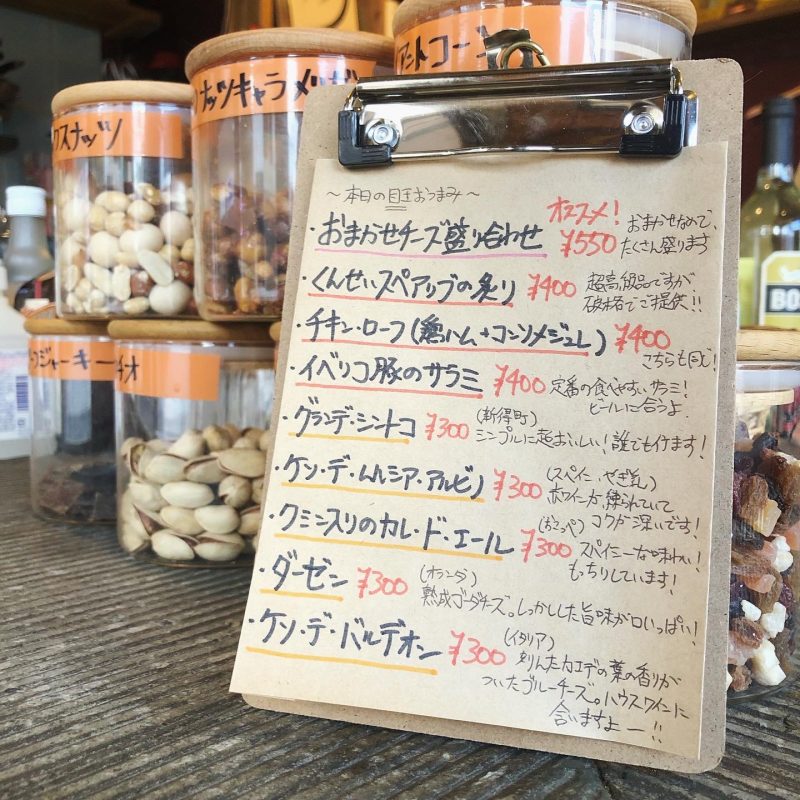 クスナッツ
ナッツキャラメリゼ
アントコーン
ジャーキー
チオ
BO
〜本日の目玉おつまみ〜
オススメ!
・おまかせチーズ盛り合わせ ¥550 おまかせなので、
たくさん盛ります
・くんせいスペアリブの炙り ¥400 超高級品ですが
破格でご提供!!
・チキン・ローフ(鶏ハム+コンソメジュレ) ¥400
こちらも同じ!
・イベリコ豚のサラミ ¥400 定番の食べやすいサラミ!
ビールに合うよ
・グランデ・シントコ ¥300 (新得町)
シンプルに超おいしい!誰でも行けます!
・ケソ・デ・ムルシア・アルビノ ¥300 (スペイン、やぎ乳)
白ワインが練られていて
コクが深いです!
・クミン入りのカレ・ド・エール ¥300 (おこっぺ)
スパイシーな味わい!
もっちりしています!
・ダーゼン ¥300 (オランダ)
熟成ゴーダチーズ。しっかしした旨味が口いっぱい!
・ケソ・デ・バルデオン ¥300 (イタリア)
刻んだカエデの葉の香りが
ついたブルーチーズ。ハウスワインに
合いますよー!!